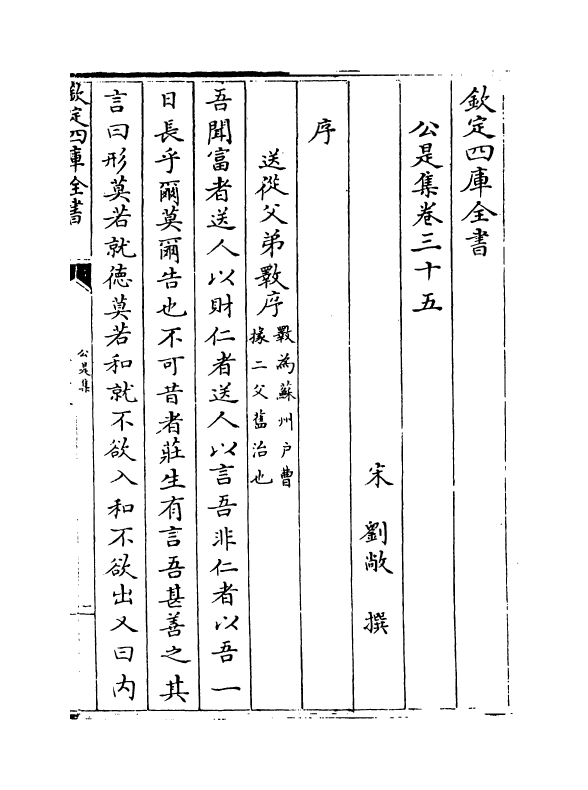 欽定四庫全書
公是集卷三十五
宋 劉敞 撰
序
送從父弟斁序斁為蘇州户曹
掾二父舊治也
吾聞富者送人以財仁者送人以言吾非仁者以吾一
日長乎爾莫爾告也不可昔者莊生有言吾甚善之其
言曰形莫若就徳莫若和就不欲入和不欲出又曰内
欽定四庫全書
公是集
一